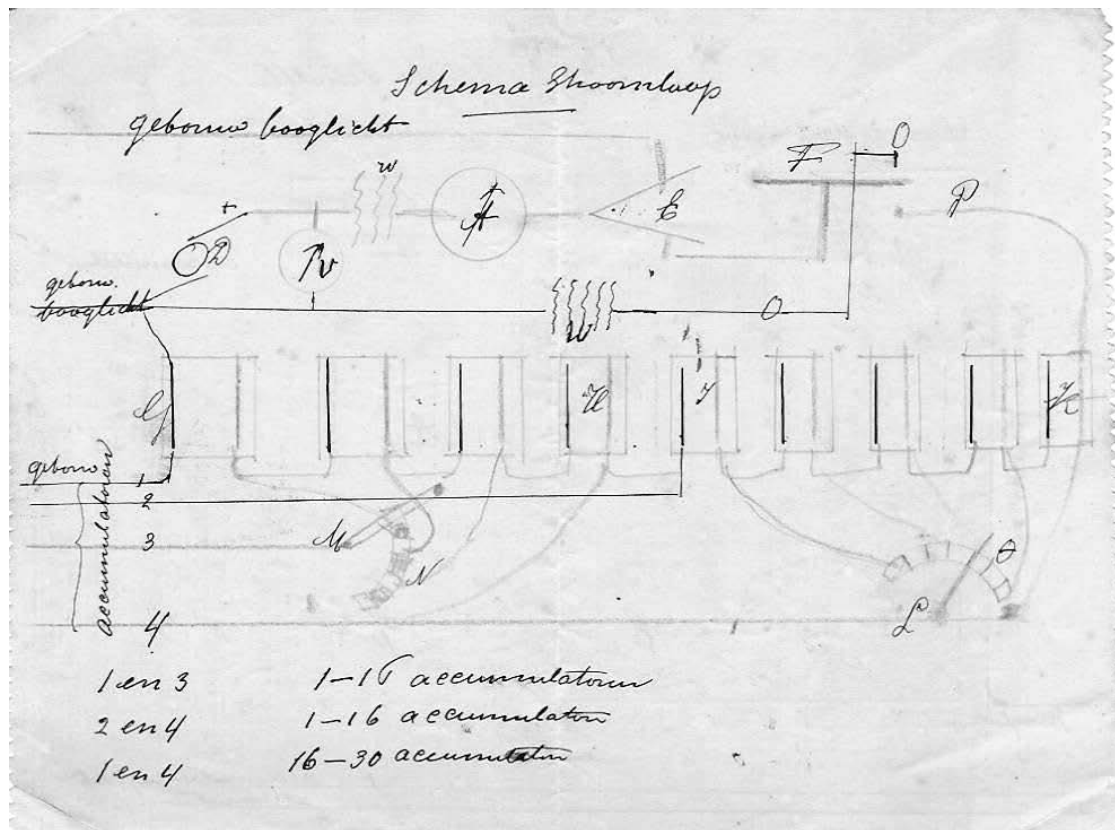 Schema Stroomloop
gebouw booglicht
O
F
w
+
A
E
P
D
V
gebouw.
booglicht
O
W
G
H
J
K
gebouw
1
accumulatoren
2
3
M
N
O
L
4
1 en 3 1–16 accumulatoren
2 en 4 1–16 accumulatoren
1 en 4 16–30 accumulatoren